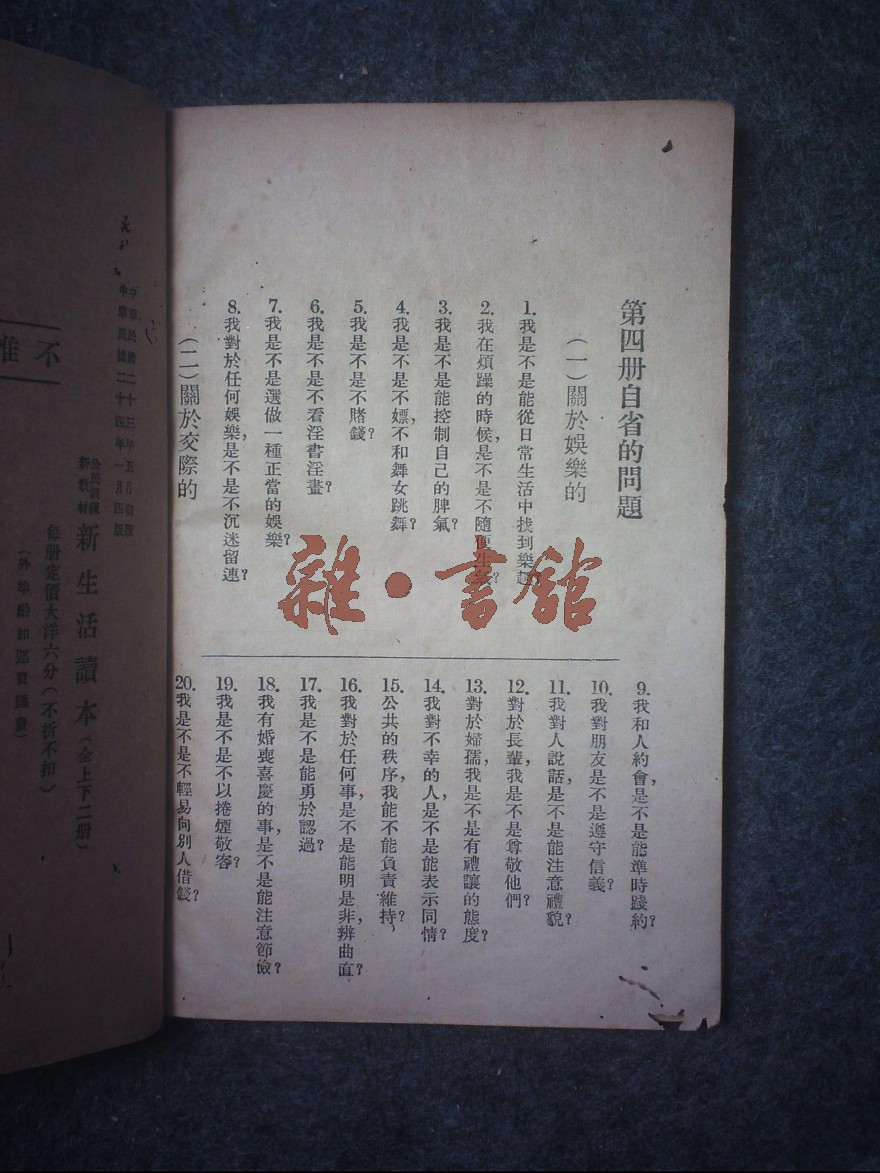 第四册自省的問題
(一)關於娛樂的
1.我是不是能從日常生活中找到樂趣?
2.我在煩躁的時候,是不是不隨便生氣?
3.我是不是能控制自己的脾氣?
4.我是不是不嫖,不和舞女跳舞?
5.我是不是不賭錢?
6.我是不是不看淫書淫畫?
7.我是不是選做一種正當的娛樂?
8.我對於任何娛樂,是不是不沉迷留連?
(二)關於交際的
9.我和人約會,是不是能準時踐約?
10.我對朋友是不是遵守信義?
11.我對人說話,是不是能注意禮貌?
12.對於長輩,我是不是尊敬他們?
13.對於婦孺,我是不是有禮讓的態度?
14.我對不幸的人,是不是能表示同情?
15.公共的秩序,我能不能負責維持?
16.我對於任何事,是不是能明是非,辨曲直?
17.我是不是能勇於認過?
18.我有婚喪喜慶的事,是不是能注意節儉?
19.我是不是不以捲煙敬客?
20.我是不是不輕易向別人借錢?
雜·書館
中華民國二十三年五月初版
中華民國二十四年一月四版
公民訓練
新教材
新生活讀本(全上下二册)
每册定價大洋六分(不折不扣)
(外埠酌加運費匯費)
不
准